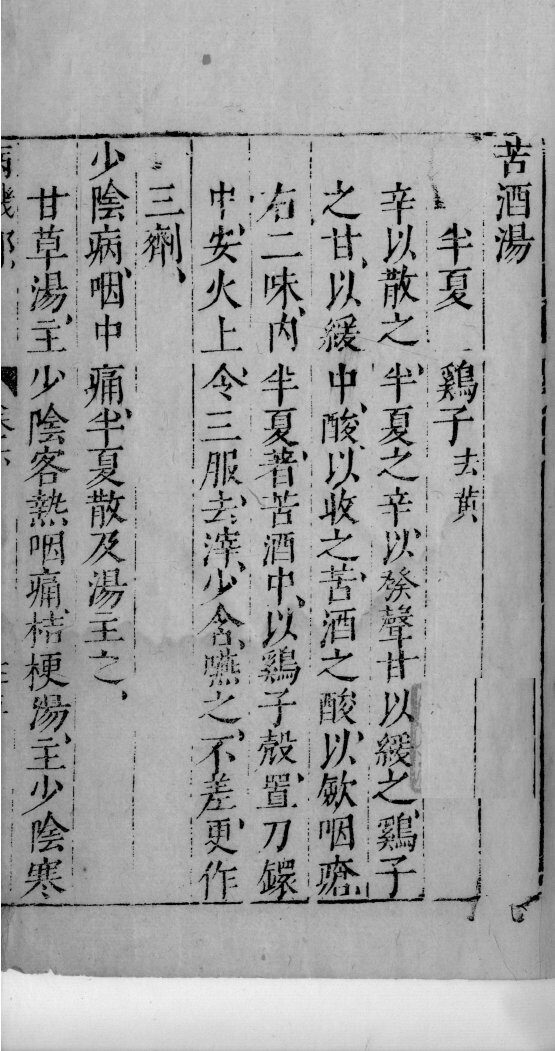 苦酒湯
半夏　鷄子去黄
辛以散之、半夏之辛、以發聲、甘以緩之、鷄子
之甘、以緩中、酸以收之、苦酒之酸、以斂咽瘡、
右二味、内半夏、著苦酒中、以鷄子殼、置刀鐶
中、安火上、令三服、去滓、少含嚥之、不差、更作
三劑、
少陰病、咽中痛、半夏散及湯主之、
甘草湯、主少陰客熱咽痛、桔梗湯、主少陰寒